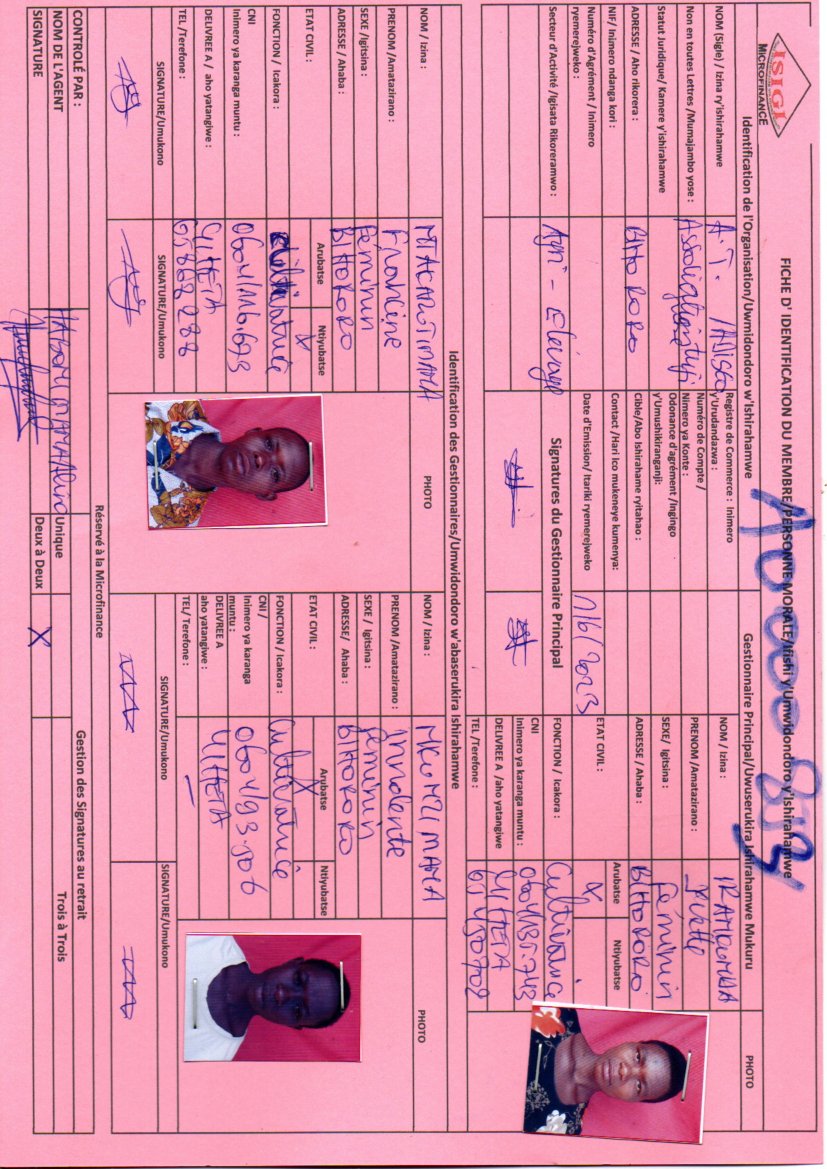 ISIGI
MICROFINANCE
FICHE D' IDENTIFICATION DU MEMBRE/PERSONNE MORALE/Ifishi y'Umwidondoro y'Ishirahamwe
Identification de l'Organisation/Uwmidondoro w'Ishirahamwe
Gestionnaire Principal/Uwuserukira Ishirahamwe Mukuru
PHOTO
NOM (Sigle) / Izina ry'ishirahamwe
A.T.
Non en toutes Lettres /Mumajambo yose :
Association
Statut Juridique/ Kamere y'ishirahamwe
ADRESSE / Aho rikorera :
BIHORORO
NIF/ Inimero ndanga kori :
Numéro d'Agrément / Inimero ryemerejweko :
Secteur d'Activité /Igisata Rikoreramwo :
Agri - Elevage
Registre de Commerce : Inimero y'Urudandazwa :
Numéro de Compte / Nimero ya Konte :
Odonance d'agrément /Ingingo y'Umushikiranganji:
Cible/Abo Ishirahame ryitaho :
Contact /Hari ico mukeneye kumenya:
Date d'Emission/ Itariki ryemerejweko
Signatures du Gestionnaire Principal
NOM / Izina :
PRENOM /Amatazirano :
Yvette
SEXE/ Igitsina :
Féminin
ADRESSE / Ahaba :
BIHORORO
ETAT CIVIL :
Arubatse
Ntiyubatse
X
FONCTION / Icakora :
Cultivatrice
CNI
Inimero ya karanga muntu :
DELIVREE A /aho yatangiwe
GIHETA
TEL /Terefone :
Identification des Gestionnaires/Umwidondoro w'abaserukira Ishirahamwe
NOM / Izina :
PHOTO
PRENOM /Amatazirano :
Francine
SEXE /Igitsina :
Féminin
ADRESSE / Ahaba :
BIHORORO
ETAT CIVIL :
Arubatse
Ntiyubatse
X
FONCTION / Icakora :
Cultivatrice
CNI
Inimero ya karanga muntu :
0604/116.673
DELIVREE A / aho yatangiwe :
GIHETA
TEL /Terefone :
SIGNATURE/Umukono
SIGNATURE/Umukono
NOM / Izina :
NKUNZIMANA
PHOTO
PRENOM /Amatazirano :
Innocente
SEXE / Igitsina :
Féminin
ADRESSE/ Ahaba :
BIHORORO
ETAT CIVIL :
Arubatse
Ntiyubatse
X
FONCTION/ Icakora :
Cultivatrice
CNI /
Inimero ya karanga muntu :
0604/93.506
DELIVREE A
aho yatangiwe :
GIHETA
TEL/ Terefone :
SIGNATURE/Umukono
SIGNATURE/Umukono
Réservé à la Microfinance
CONTROLÉ PAR :
Gestion des Signatures au retrait
NOM DE L'AGENT
Unique
Trois à Trois
SIGNATURE
Deux à Deux
X